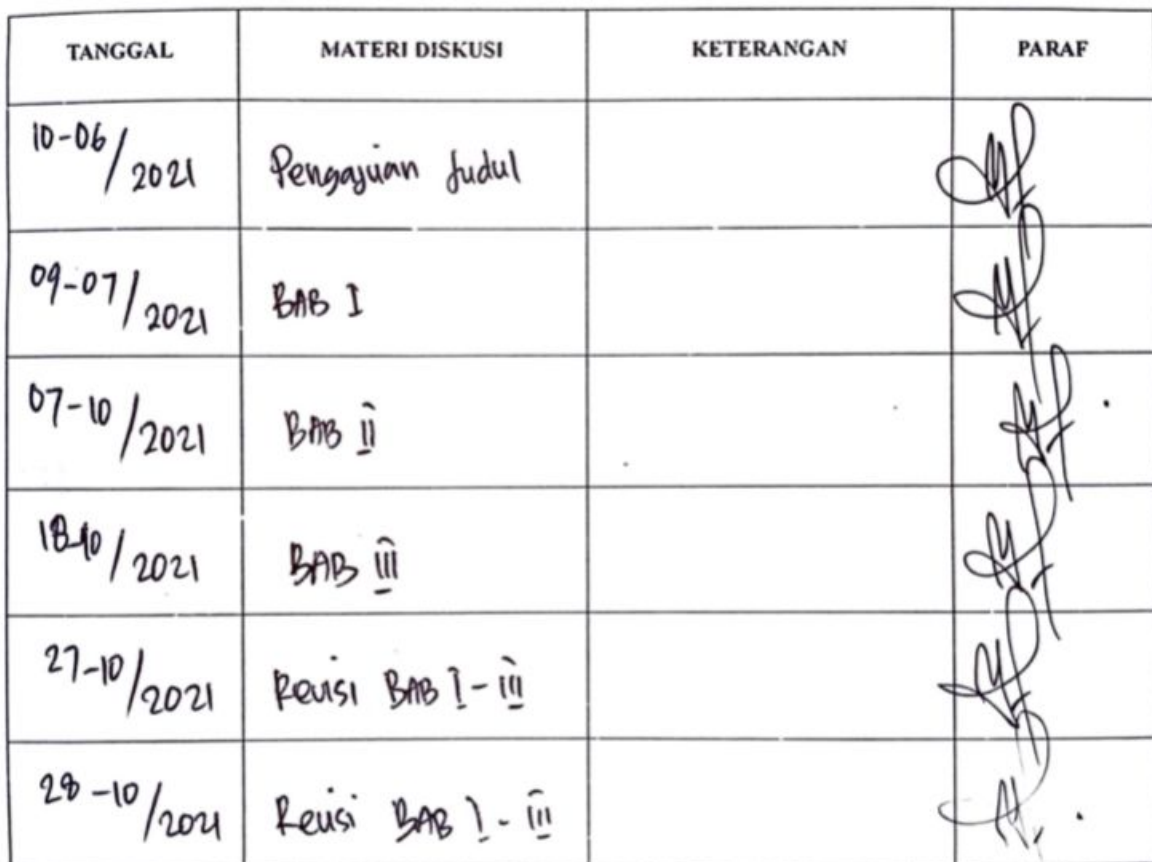 TANGGAL MATERI DISKUSI KETERANGAN PARAF
10-06/2021 Pengajuan Judul
09-07/2021 BAB I
07-10/2021 BAB II
18-10/2021 BAB III
27-10/2021 Revisi BAB I - III
28-10/2021 Revisi BAB I - III